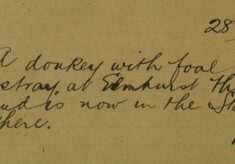 28
A donkey with foal
astray at Elmhurst this
and is now in the
there.